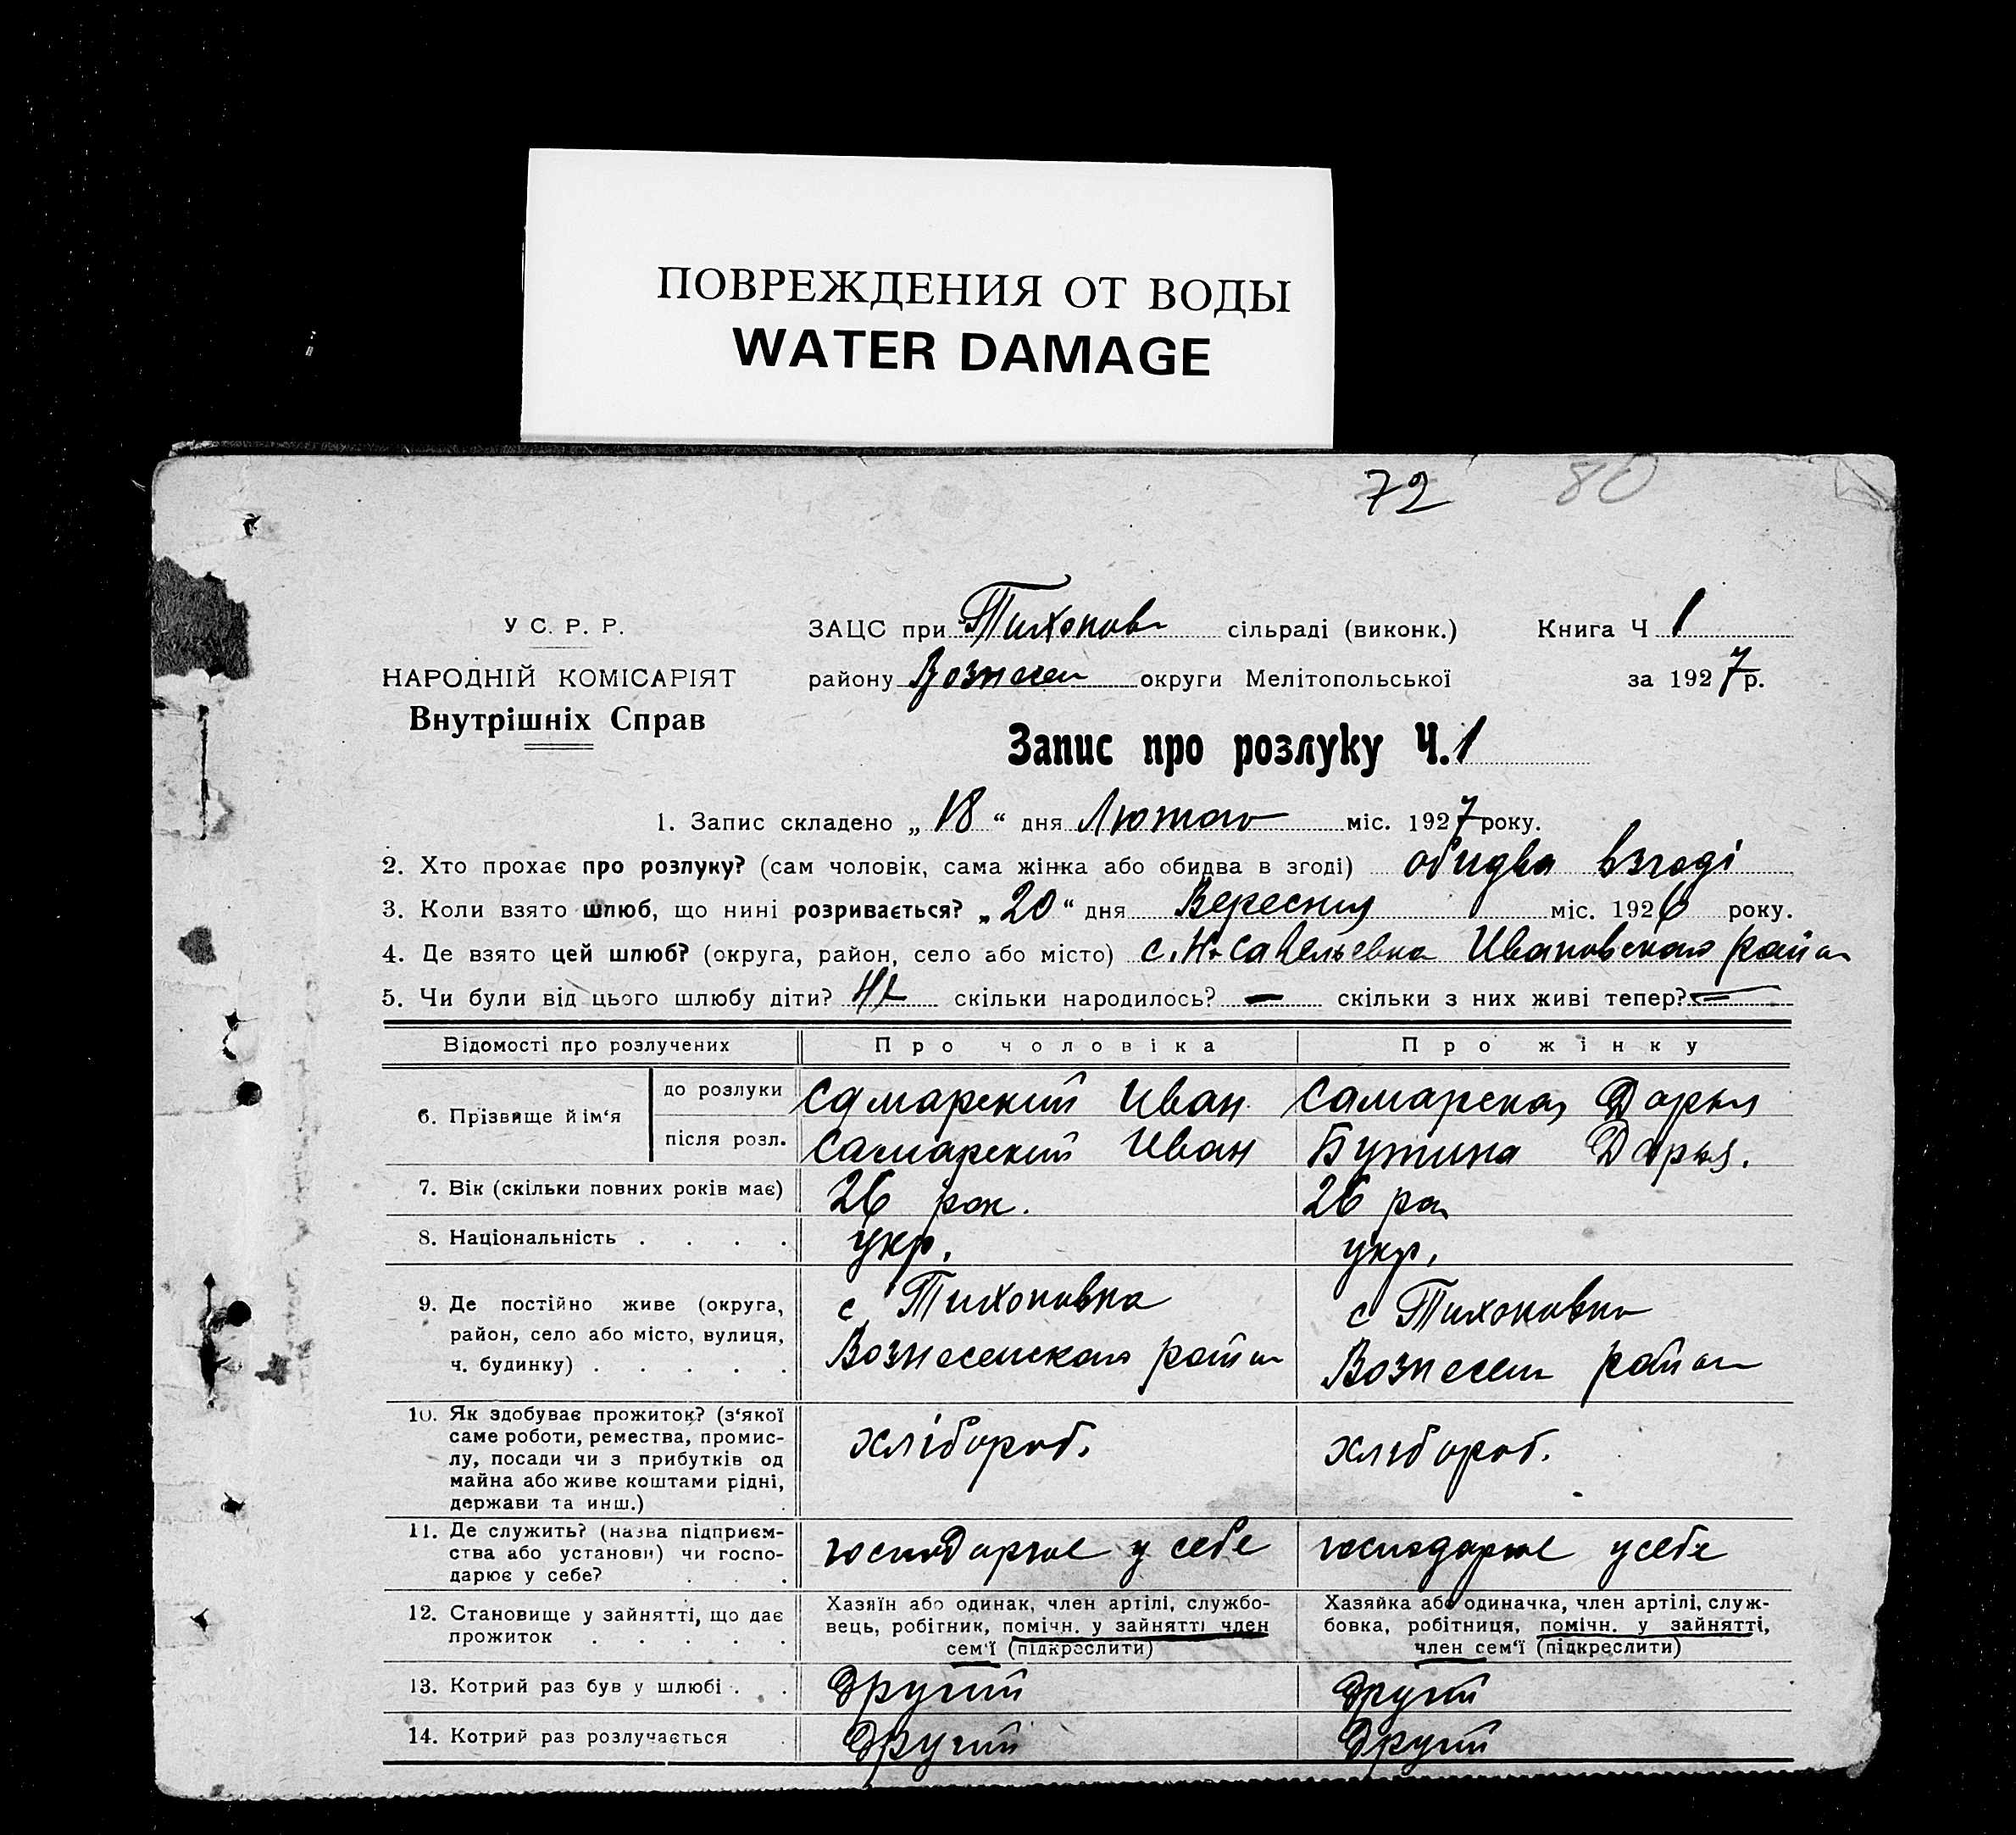 ПОВРЕЖДЕНИЯ ОТ ВОДЫ
WATER DAMAGE
72 80
У С. Р. Р.
НАРОДНІЙ КОМІСАРІЯТ
Внутрішніх Справ
ЗАЦС при Тихонов сільраді (виконк.) Книга Ч 1
району Вознесен округи Мелітопольської за 1927 р.
Запис про розлуку Ч. 1
1. Запис складено „18“ дня Лютого міс. 1927 року.
2. Хто прохає про розлуку? (сам чоловік, сама жінка або обидва в згоді) обидва взгоді
3. Коли взято шлюб, що нині розривається? „20“ дня Вересня міс. 1926 року.
4. Де взято цей шлюб? (округа, район, село або місто) с. Н. Савельевка Ивановского район
5. Чи були від цього шлюбу діти? скільки народилось? — скільки з них живі тепер? —
Відомості про розлучених Про чоловіка Про жінку
6. Прізвище й ім‘я до розлуки Самарский Иван Самарская Дарья
після розл. Самарский Иван Бутина Дарья.
7. Вік (скільки повних років має) 26 рок. 26 ро
8. Національність . . . . укр. укр.
9. Де постійно живе (округа, с Тихоновка с Тихоновка
район, село або місто, вулиця,
ч. будинку) . . . . . Вознесенского район Вознесен район
10. Як здобуває прожиток? (з‘якої
саме роботи, ремества, промис-
лу, посади чи з прибутків од хлібороб. хлібороб.
майна або живе коштами рідні,
держави та инш.)
11. Де служить? (назва підприєм-
ства або установи) чи госпо- господарює у себе господарює усебе
дарює у себе? . . .
12. Становище у зайнятті, що дає
прожиток . . . . .
Хазяїн або одинак, член артілі, службо-
вець, робітник, помічн. у зайнятті член
сем‘ї (підкреслити)
Хазяйка або одиначка, член артілі, служ-
бовка, робітниця, помічн. у зайнятті,
член сем‘ї (підкреслити)
13. Котрий раз був у шлюбі . . другий другий
14. Котрий раз розлучається другий другий